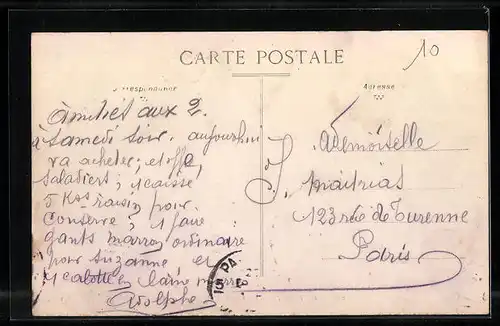 CARTE POSTALE
10
Correspondance
Adresse
Amitiés aux 2.
à samedi soir. aujourdhui
va acheter;
saladiers; 1 caisse
5 Kgs raisin pour
conserve; 1 paire
gants marron ordinaire
pour Suzanne et
1 calotte laine
Adolphe
Mademoiselle
J. Maitrias
123 rue de Turenne
Paris